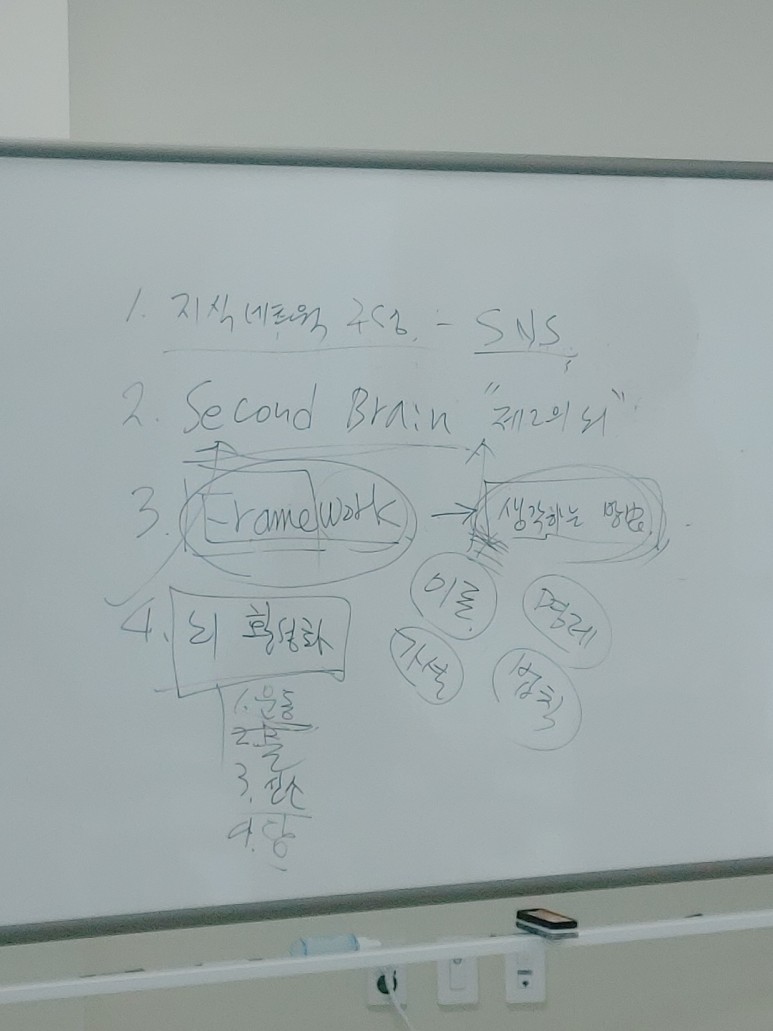 1. 지식네트웍 구성 - SNS
2. Second Brain "제2의 뇌"
3. Framework → 생각하는 방법
이론
명제
가설
법칙
4. 뇌 활성화
1. 운동
2. 물
3. 산소
4. 당